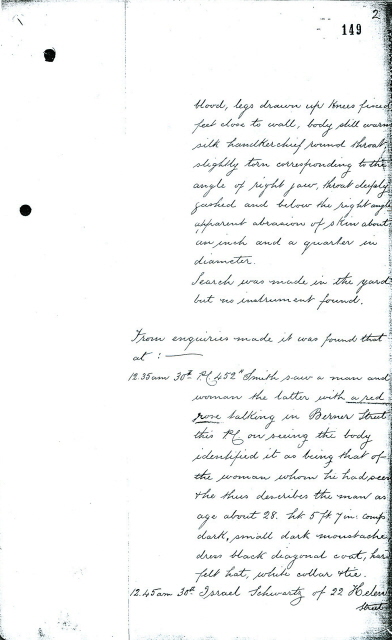 2
149
blood, legs drawn up knees fixed
feet close to wall, body still warm
silk handkerchief round throat,
slightly torn corresponding to the
angle of right jaw, throat deeply
gashed and below the right angle
apparent abrasion of skin about
an inch and a quarter in
diameter.
Search was made in the yard
but no instrument found.
From enquiries made it was found that
at :—
12.35am 30th P.C. 452H Smith saw a man and
woman the latter with a red
rose talking in Berner Street
this P.C. on seeing the body
identified it as being that of
the woman whom he had seen
& he thus describes the man as
age about 28. ht. 5ft 7in: comp.
dark, small dark moustache,
dress black diagonal coat, hard
felt hat, white collar & tie.
12.45am 30th Israel Schwartz of 22 Helen
Street